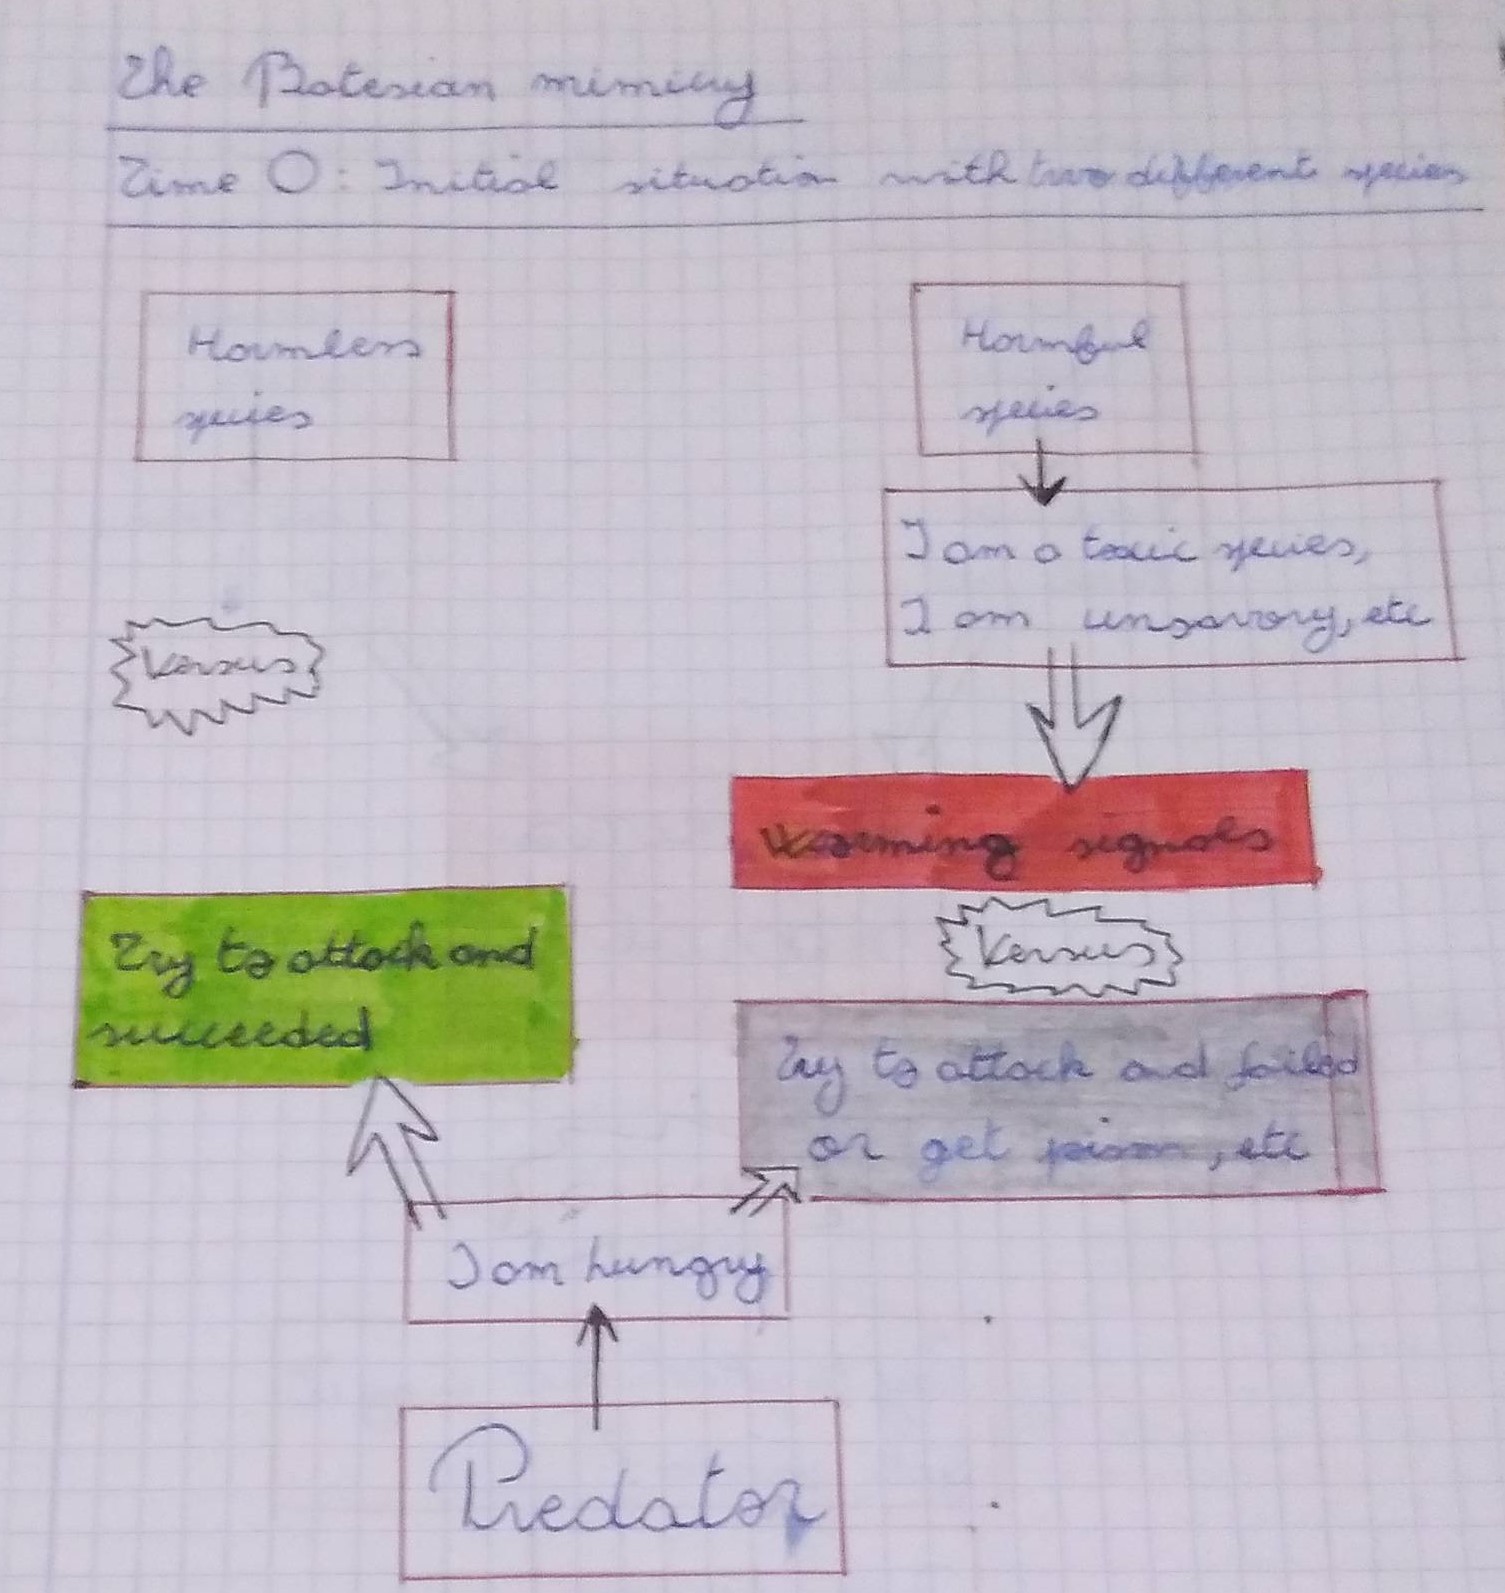 The Batesian mimicry
Time 0: Initial situation with two different species
Harmless
species
Harmful
species
I am a toxic species,
I am unsavory, etc
Versus
Warning signals
Versus
Try to attack and
succeeded
Try to attack and failed
or get poison, etc
I am hungry
Predator